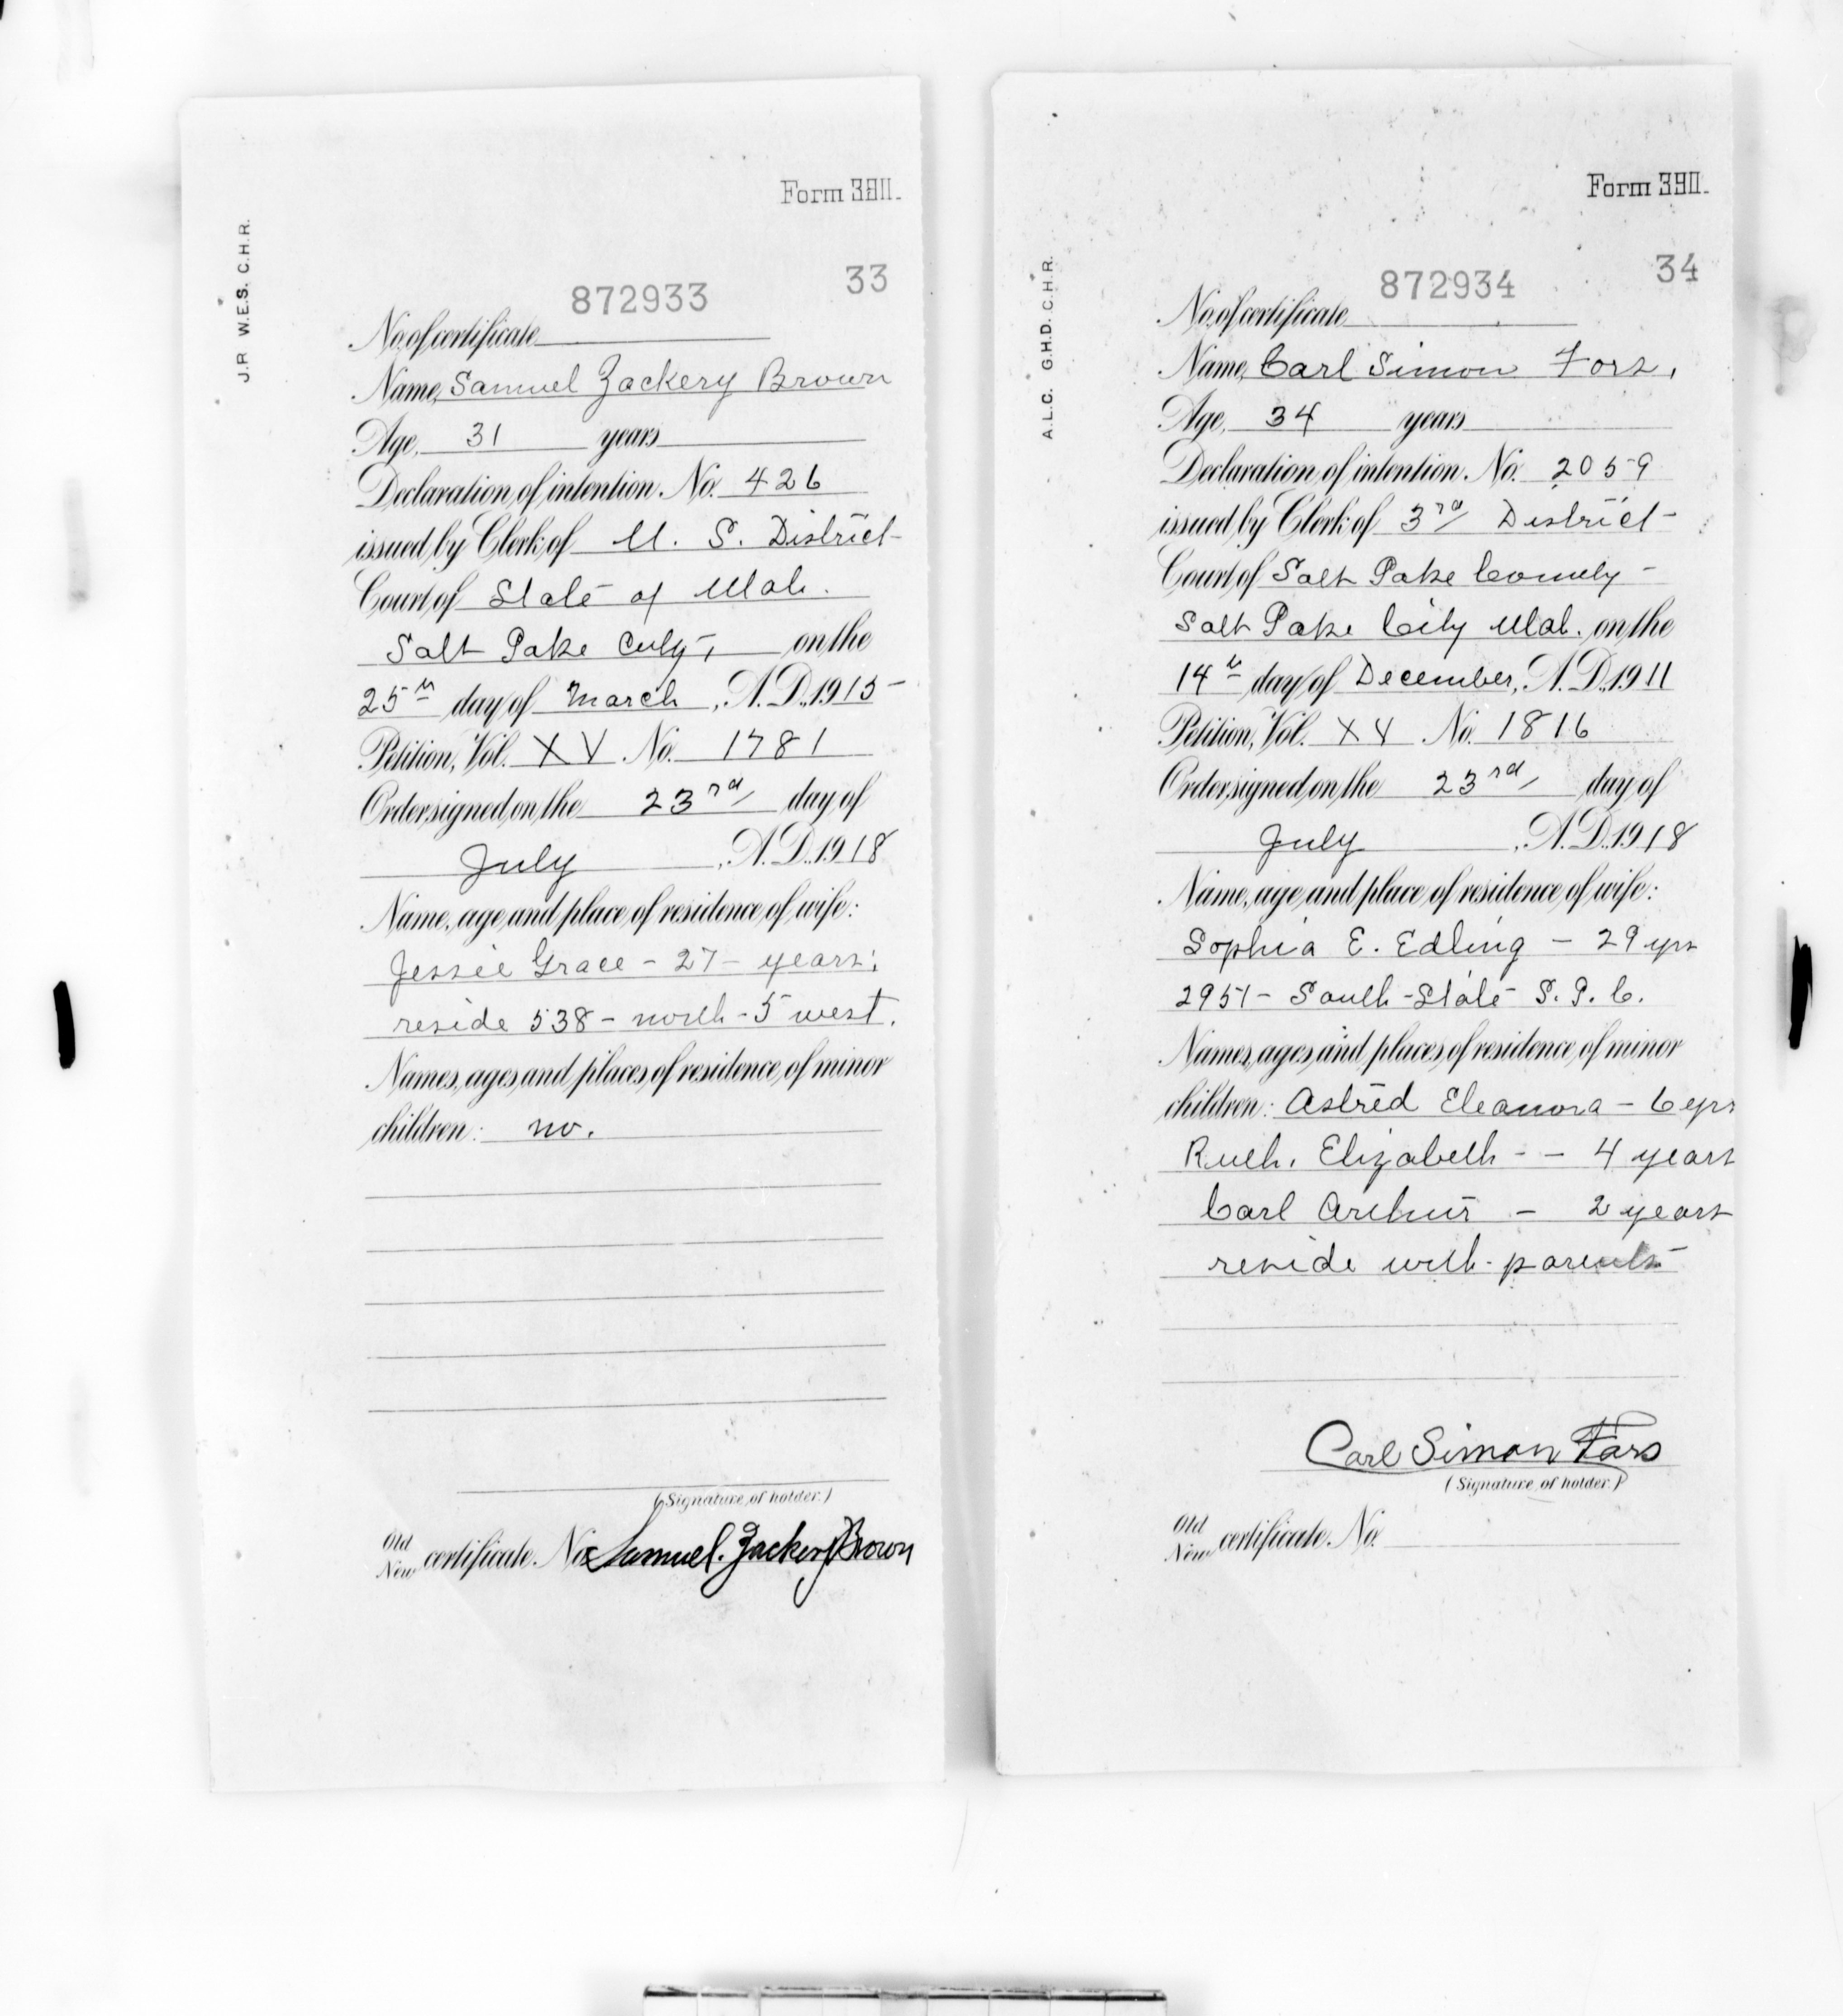 Form 3911.
J.P. W.E.S. C.H.R.
33
872933
No. of certificate
Name, Samuel Zackery Brown
Age, 31 years
Declaration of intention. No. 426
issued by Clerk of U. S. District
Court of State of Utah.
Salt Lake City, on the
25th day of March, A.D. 1915
Petition, Vol. XV No. 1781
Order signed on the 23rd day of
July, A.D. 1918
Name, age and place of residence of wife:
Jessie Grace - 27 - years;
reside 538 - north - 5 west.
Names, ages and places of residence of minor
children: no.
(Signature of holder.)
Old
New certificate. No. Samuel. Zackery Brown
Form 3911.
A.L.C. G.H.D. C.H.R.
34
872934
No. of certificate
Name, Carl Simon Fors,
Age, 34 years
Declaration of intention. No. 2059
issued by Clerk of 3rd District
Court of Salt Lake County -
Salt Lake City Utah. on the
14th day of December, A.D. 1911
Petition, Vol. XV No. 1816
Order signed on the 23rd day of
July, A.D. 1918
Name, age and place of residence of wife:
Sophia E. Edling - 29 yrs
2951 - South - State S. L. C.
Names, ages and places of residence of minor
children: Astrid Eleanora - 6 yrs
Ruth. Elizabeth - - 4 years
Carl Arthur - 2 years
reside with parents
Carl Simon Fors
(Signature of holder.)
Old
New certificate. No.